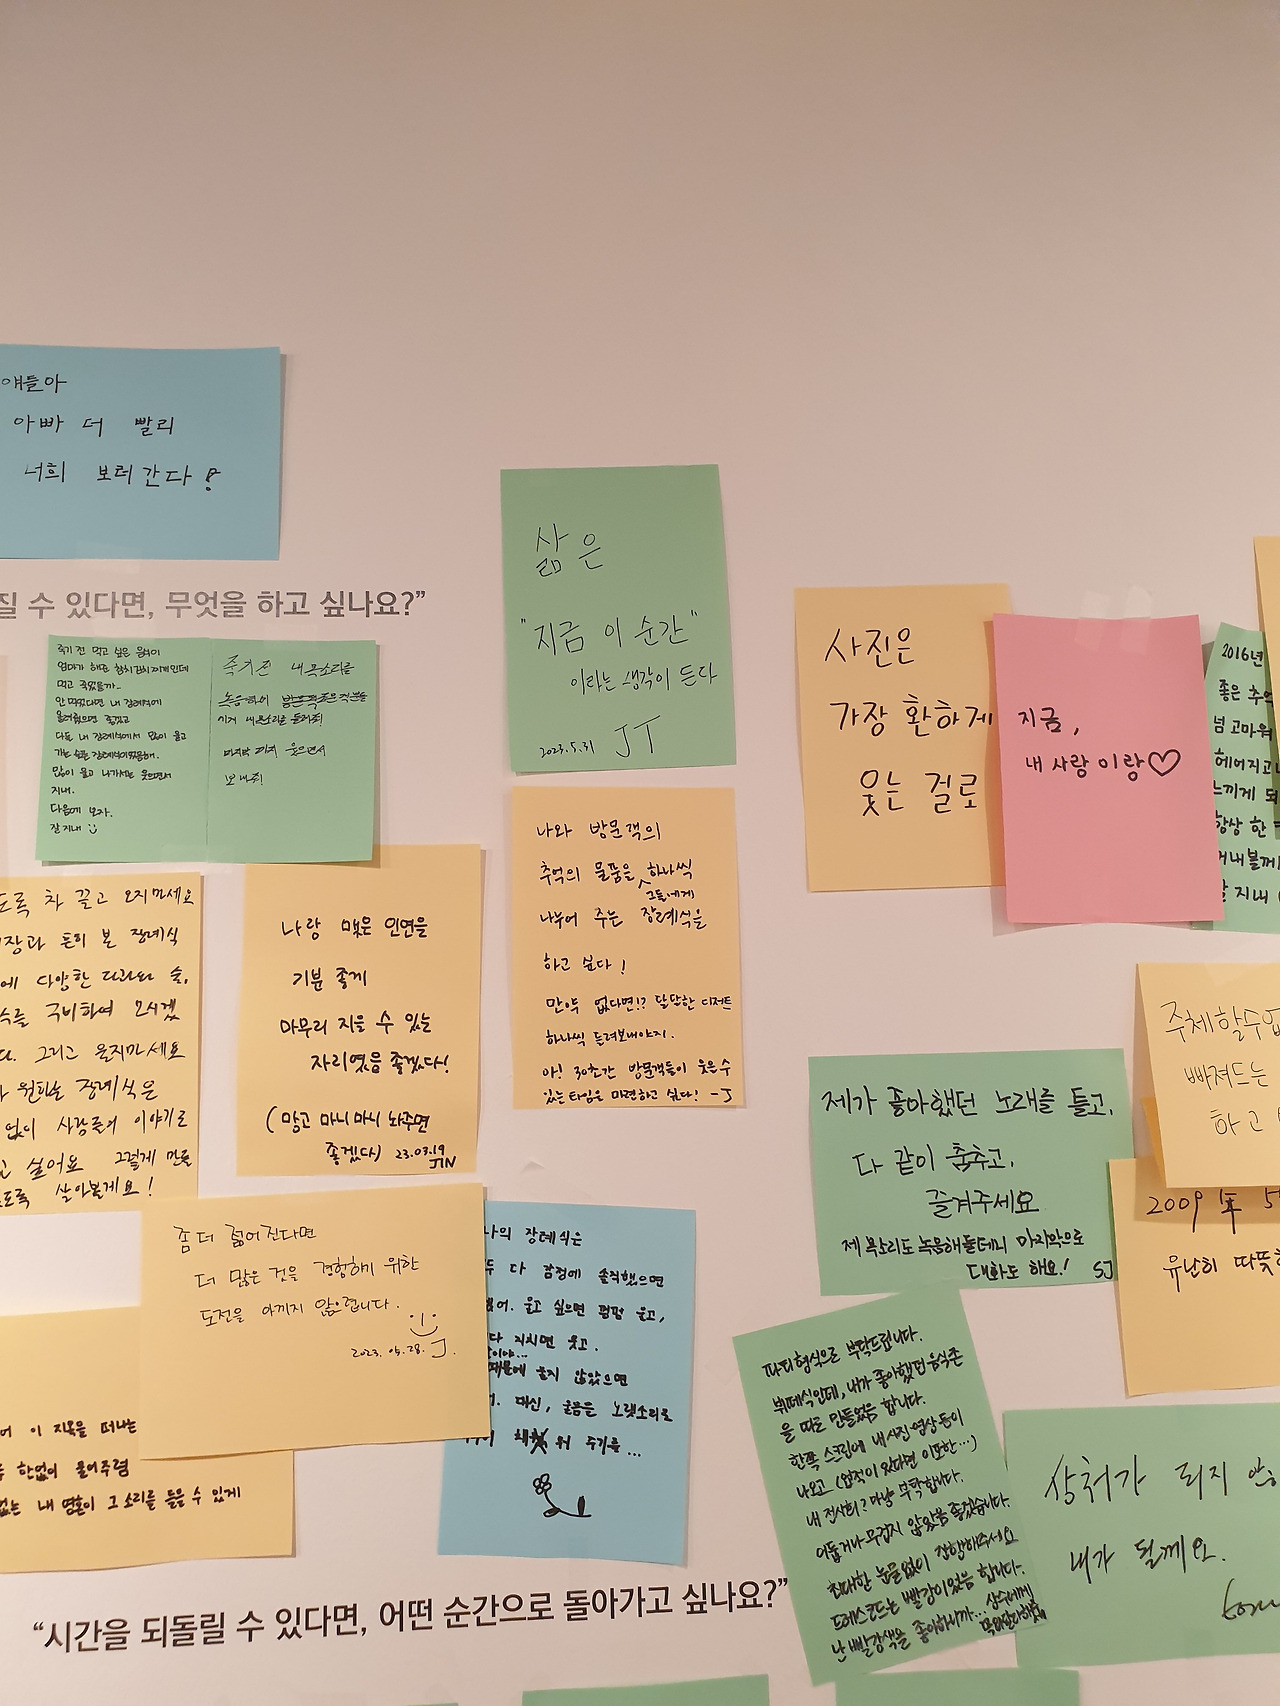 얘들아
아빠 더 빨리
너희 보러 간다!
질 수 있다면, 무엇을 하고 싶나요?”
죽기 전 먹고 싶은 음식이
엄마가 해준 참치김치찌개인데
먹고 죽었을까..
안 먹었다면 내 장례식에
올려줬으면 좋겠고
다들 내 장례식에서 많이 울고
가는 슬픈 장례식이였음해.
많이 울고 나가서는 웃으면서
지내.
다음에 보자.
잘지내
죽기 전 내 목소리를
녹음하여
기거 내 목소리를 들려줘!
마지막 까지 웃으면서
보내줘!
삶은
"지금 이 순간"
이라는 생각이 든다
2023.5.31 JT
사진은
가장 환하게
웃는 걸로
지금,
내 사랑 이랑♡
2016년
좋은 추억
넘 고마워
헤어지고
느끼게 되
항상 한
꺼내볼께
잘 지내
도록 차 끌고 오지마세요
장과 흔히 본 장례식
에 다양한 다과와 술,
식을 구비하여 모시겠
다. 그리고 울지마세요
원하는 장례식은
없이 사람들의 이야기로
고 싶어요 그렇게 만들
도록 살아볼게요!
나랑 맺은 인연을
기분 좋게
마무리 지을 수 있는
자리였음 좋겠다!
(망고 마니마니 놔주면
좋겠다) 23.03.19
JIN
나와 방문객의
추억의 물품을 하나씩
그들에게
나누어 주는 장례식을
하고 싶다!
만약 없다면!? 달달한 디저트
하나씩 들려보내야지.
아! 30초간 방문객들이 웃을 수
있는 타임은 마련하고 싶다! -J
제가 좋아했던 노래를 틀고,
다 같이 춤추고,
즐겨주세요
제 목소리도 녹음해둘테니 마지막으로
대화도 해요! SJ
주체할수없
빠져드는
하고
2009年 5
유난히 따뜻
좀 더 젊어진다면
더 많은 것을 경험하기 위한
도전을 아끼지 않으렵니다.
2023. 05. 28. J.
나의 장례식은
두 다 감정에 솔직했으면
했어. 울고 싶으면 펑펑 울고,
다 지치면 웃고.
때문에 울지 않았으면
대신, 울음을 노랫소리로
워 주기를...
어 이 지옥을 떠나는
한없이 울어주렴
없는 내 영혼이 그 소리를 들을 수 있게
파티형식으로 부탁드립니다.
뷔페식인데, 내가 좋아했던 음식존
을 따로 만들었음 합니다.
한쪽 스크린에 내 사진 영상 등이
나오고 (업적이 있다면 이또한...)
내 전시회? 마냥 부탁합니다.
어둡거나 무겁지 않았음 좋겠습니다.
최대한 눈물없이 진행해주세요
드레스코드는 빨강이었음 합니다.
난 빨강색을 좋아하니까...
상처가 되지 않
내가 될께요.
“시간을 되돌릴 수 있다면, 어떤 순간으로 돌아가고 싶나요?”